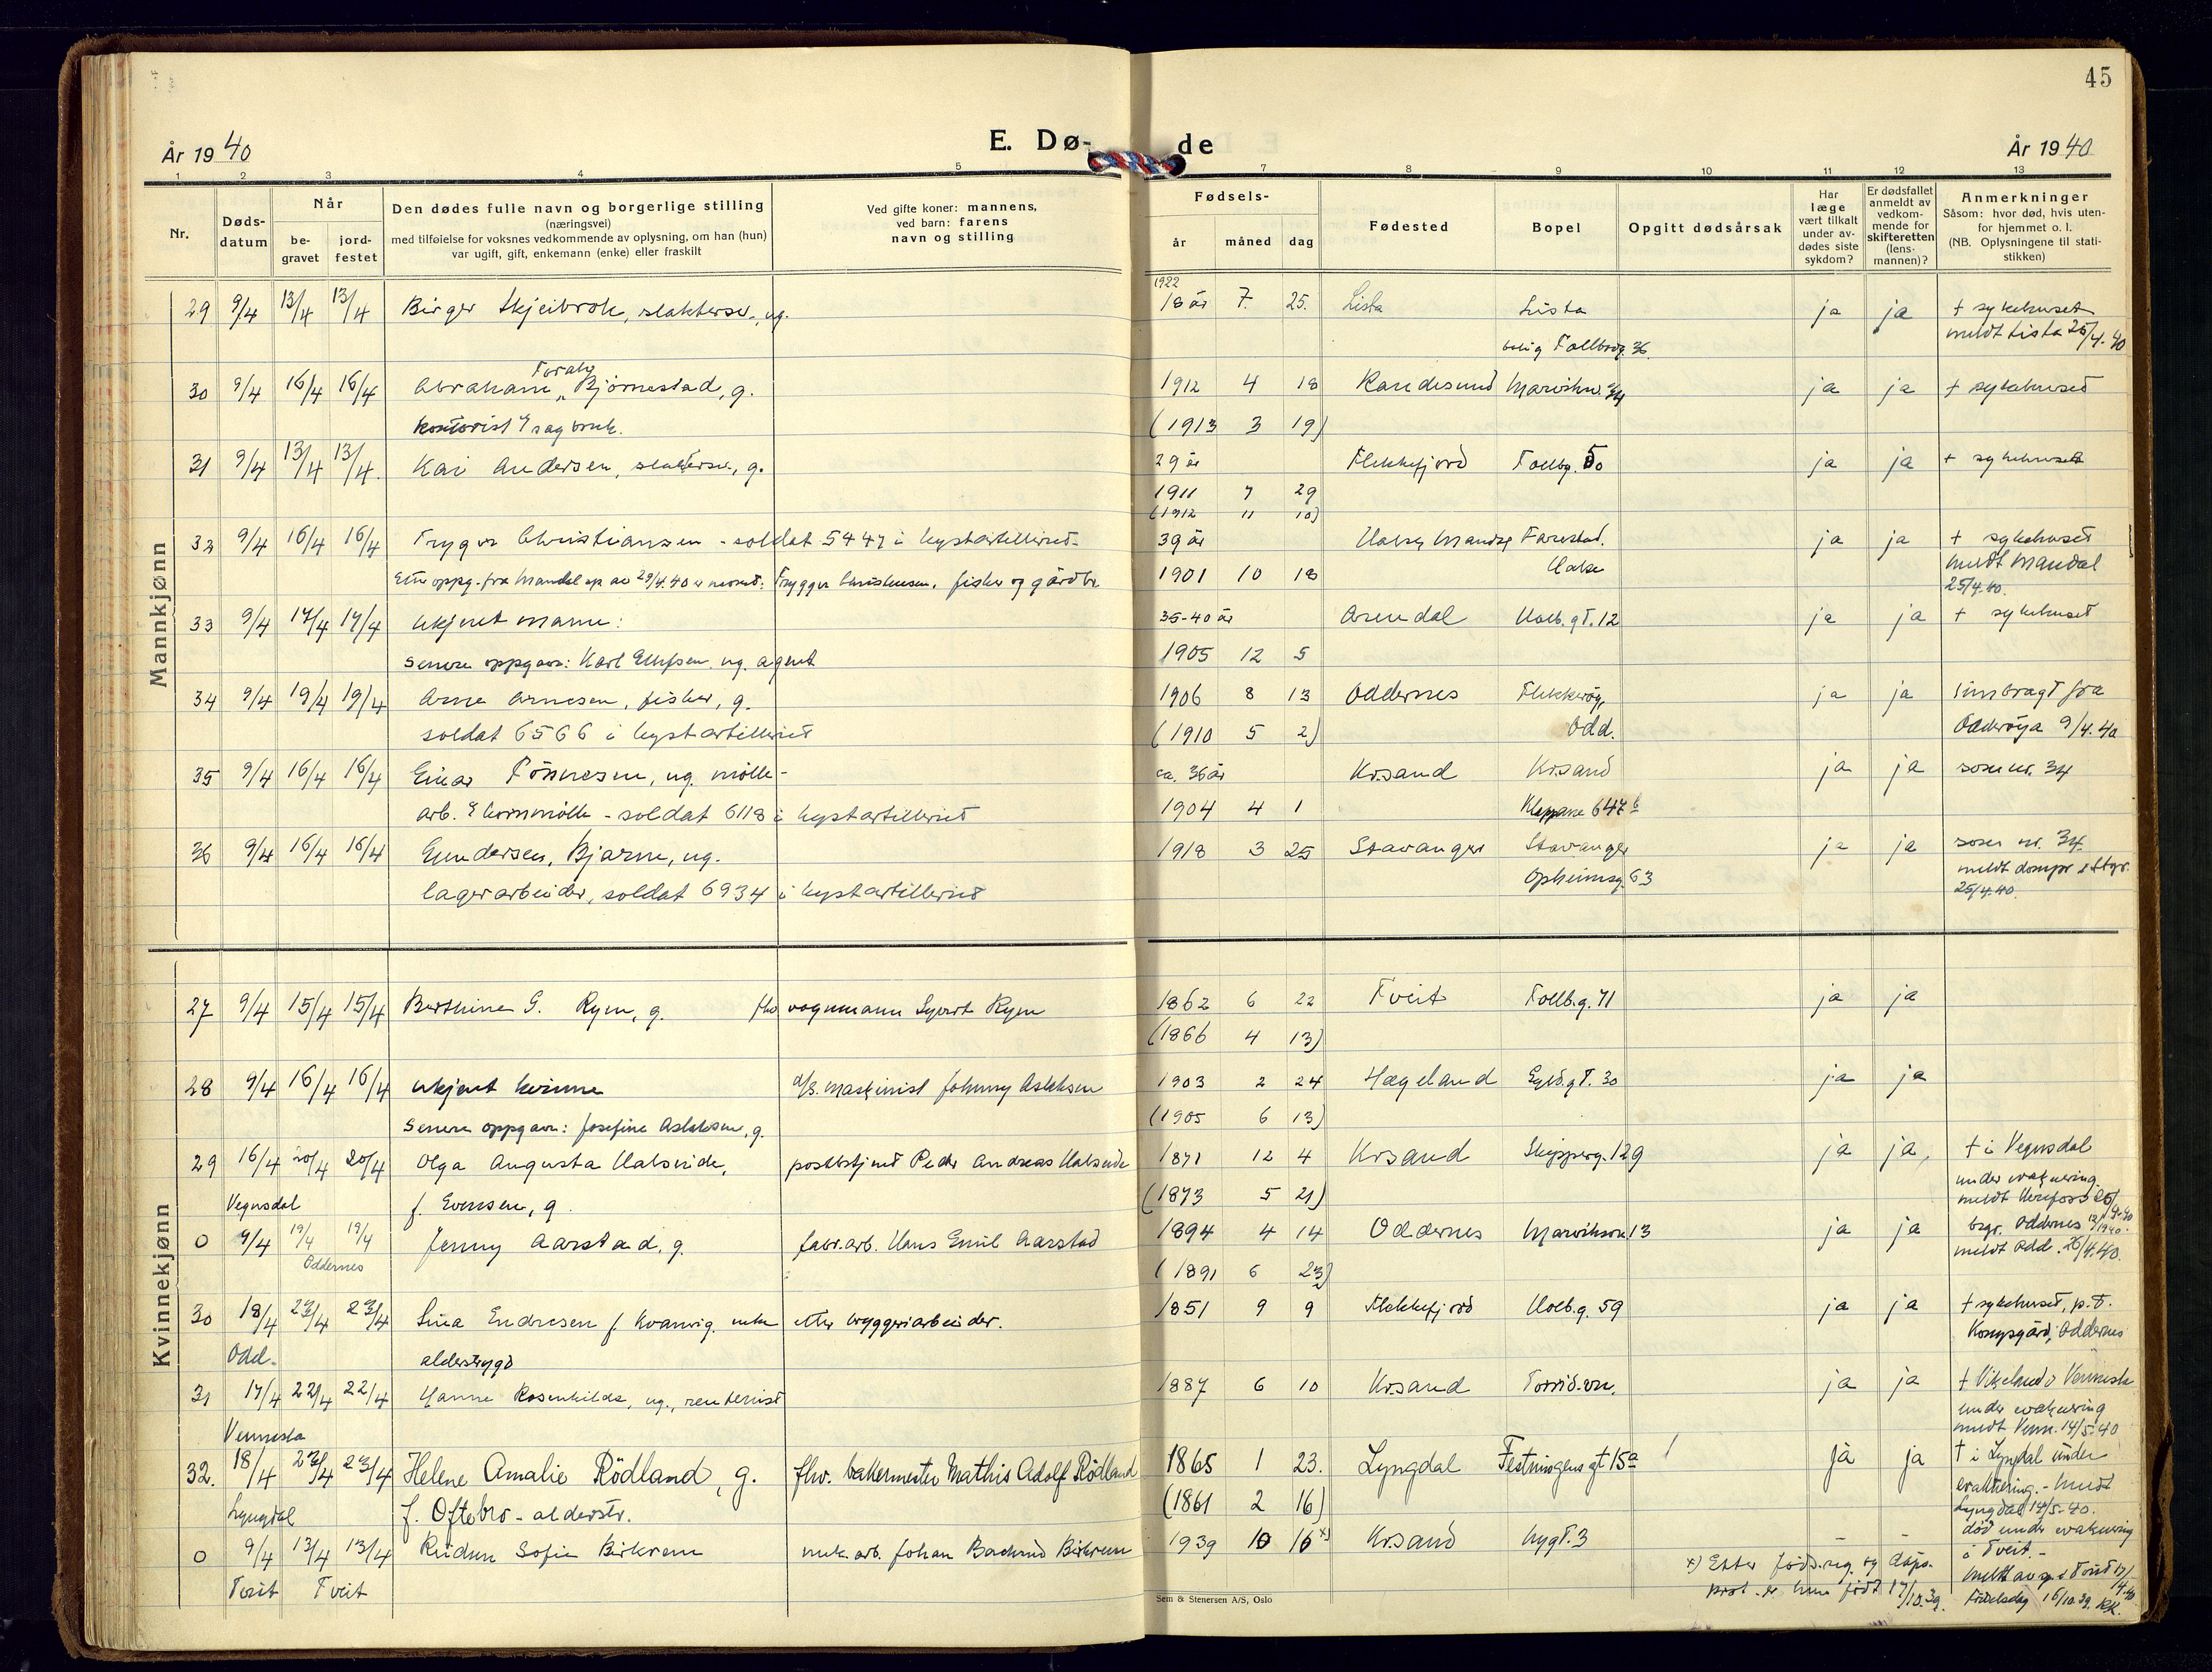 45
År 1940
E. Dø-
de
År 1940
1 2 3 4 5 7 8 9 10 11 12 13
Nr.
Døds-
datum
Når
be-
gravet
jord-
festet
Den dødes fulle navn og borgerlige stilling
(næringsvei)
med tilføielse for voksnes vedkommende av oplysning, om han (hun)
var ugift, gift, enkemann (enke) eller fraskilt
Ved gifte koner: mannens,
ved barn: farens
navn og stilling
Fødsels-
år måned dag
Fødested
Bopel
Opgitt dødsårsak
Har
læge
vært tilkalt
under av-
dødes siste
sykdom?
Er dødsfallet
anmeldt av
vedkom-
mende for
skifteretten
(lens-
mannen)?
Anmerkninger
Såsom: hvor død, hvis uten-
for hjemmet o. l.
(NB. Oplysningene til stati-
stikken)
Mannkjønn
1922
29 9/4 13/4 13/4 Birger Skjeibrok, ug. 18 år 7. 25. Lista Lista ja ja + sykehuset
meldt Lista 25/4.40
bolig Tollbodg. 36
30 9/4 16/4 16/4 Abraham Toralv Bjørnestad, g. 1912 4 18 Randesund ja ja + sykehuset
kontorist sagbruk. (1913 3 19)
31 9/4 13/4 13/4 Kai Andersen, g. 29 år Flekkefjord Tollbg. 50 ja ja + sykehuset
1911 7 29
(1912 11 10)
32 9/4 16/4 16/4 Trygve Christiansen - soldat 5447 i kystartilleriet 39 år Farestad. ja ja + sykehuset
Etter oppg. fra Mandal av 29/4.40 er navnet: Tryggve Christensen, fisker og gårdbr. 1901 10 18 meldt Mandal
25/4.40.
33 9/4 17/4 17/4 Ukjent mann: 35-40 år Arendal Holb. gt. 12 ja ja + sykehuset
Senere oppgave: Karl Ellefsen, ug. agent 1905 12 5
34 9/4 19/4 19/4 Arne Arnesen, fisker, g. 1906 8 13 Oddernes Flekkerøy, ja ja innbragt fra
soldat 6566 i kystartilleriet (1910 5 2) Odd. Odderøya 9/4.40
35 9/4 16/4 16/4 Einar Tønnesen, ug. mølle- ca. 36 år Kr.sand Kr.sand ja ja som nr. 34
arb. kornmølle - soldat 6118 i kystartilleriet 1904 4 1 Kleppane 647 b
36 9/4 16/4 16/4 Gundersen, Bjarne, ug. 1918 3 25 Stavanger Stavanger ja ja som nr. 34
lagerarbeider, soldat 6934 i kystartilleriet Opheimsg. 63 meldt dompr.
25/4.40.
Kvinnekjønn
27 9/4 15/4 15/4 Berthine G. Ryen, g. fhv vognmann Syvert Ryen 1862 6 22 Tveit Tollb.g. 71 ja ja
(1866 4 13)
28 9/4 16/4 16/4 ukjent kvinne maskinist Johnny Aslaksen 1903 2 24 Hægeland Gyld.gt. 30 ja ja
Senere oppgave: Josefine Aslaksen, g. (1905 6 13)
29 16/4 20/4 20/4 Olga Augusta Halseide, postbetjent Peder Andreas Halseide 1871 12 4 Kr.sand Skipperg. 129 ja ja + i Vegusdal
Vegusdal f. Evensen, g. (1873 5 21) under evakuering
meldt Herefoss
0 9/4 19/4 19/4 Jenny Aarstad, g. fabr.arb. Hans Emil Aarstad 1894 4 14 Oddernes Marviksvn 13 ja ja begr. Oddernes
Oddernes (1891 6 23) meldt Odd. 26/4.40.
30 18/4 23/4 23/4 Lina Endresen f. Kvanvig, enke etter bryggeriarbeider. 1851 9 9 Flekkefjord Holb.g. 59 ja ja + sykehuset, p.t.
Odd. alderstrygd Kongsgård, Oddernes
31 17/4 22/4 22/4 Hanne Rosenkilde, ug., rentenist 1887 6 10 Kr.sand ja ja + Vikeland i Vennesla
Vennesla under evakuering
meldt Venn. 14/5-40
32. 18/4 23/4 23/4 Helene Amalie Rödland, g. fhv. bakermester Mathis Adolf Rödland 1865 1 23. Lyngdal Festningens gt 15a ja ja + i Lyngdal under
Lyngdal f. Oftebro - alderstr. (1861 2 16) evakuering. - meldt
Lyngdal 14/5-40.
0 9/4 13/4 13/4 Reidun Sofie Birkrem mek. arb. Johan Birkrem 1939 10 16 x) Kr.sand - - død under evakuering
Tveit Tveit i Tveit. -
x) Etter føds.reg. og dåps-
prot. er hun født 17/10.39.
Fødselsdag 16/10.39. KK.
Sem & Stenersen A/S, Oslo